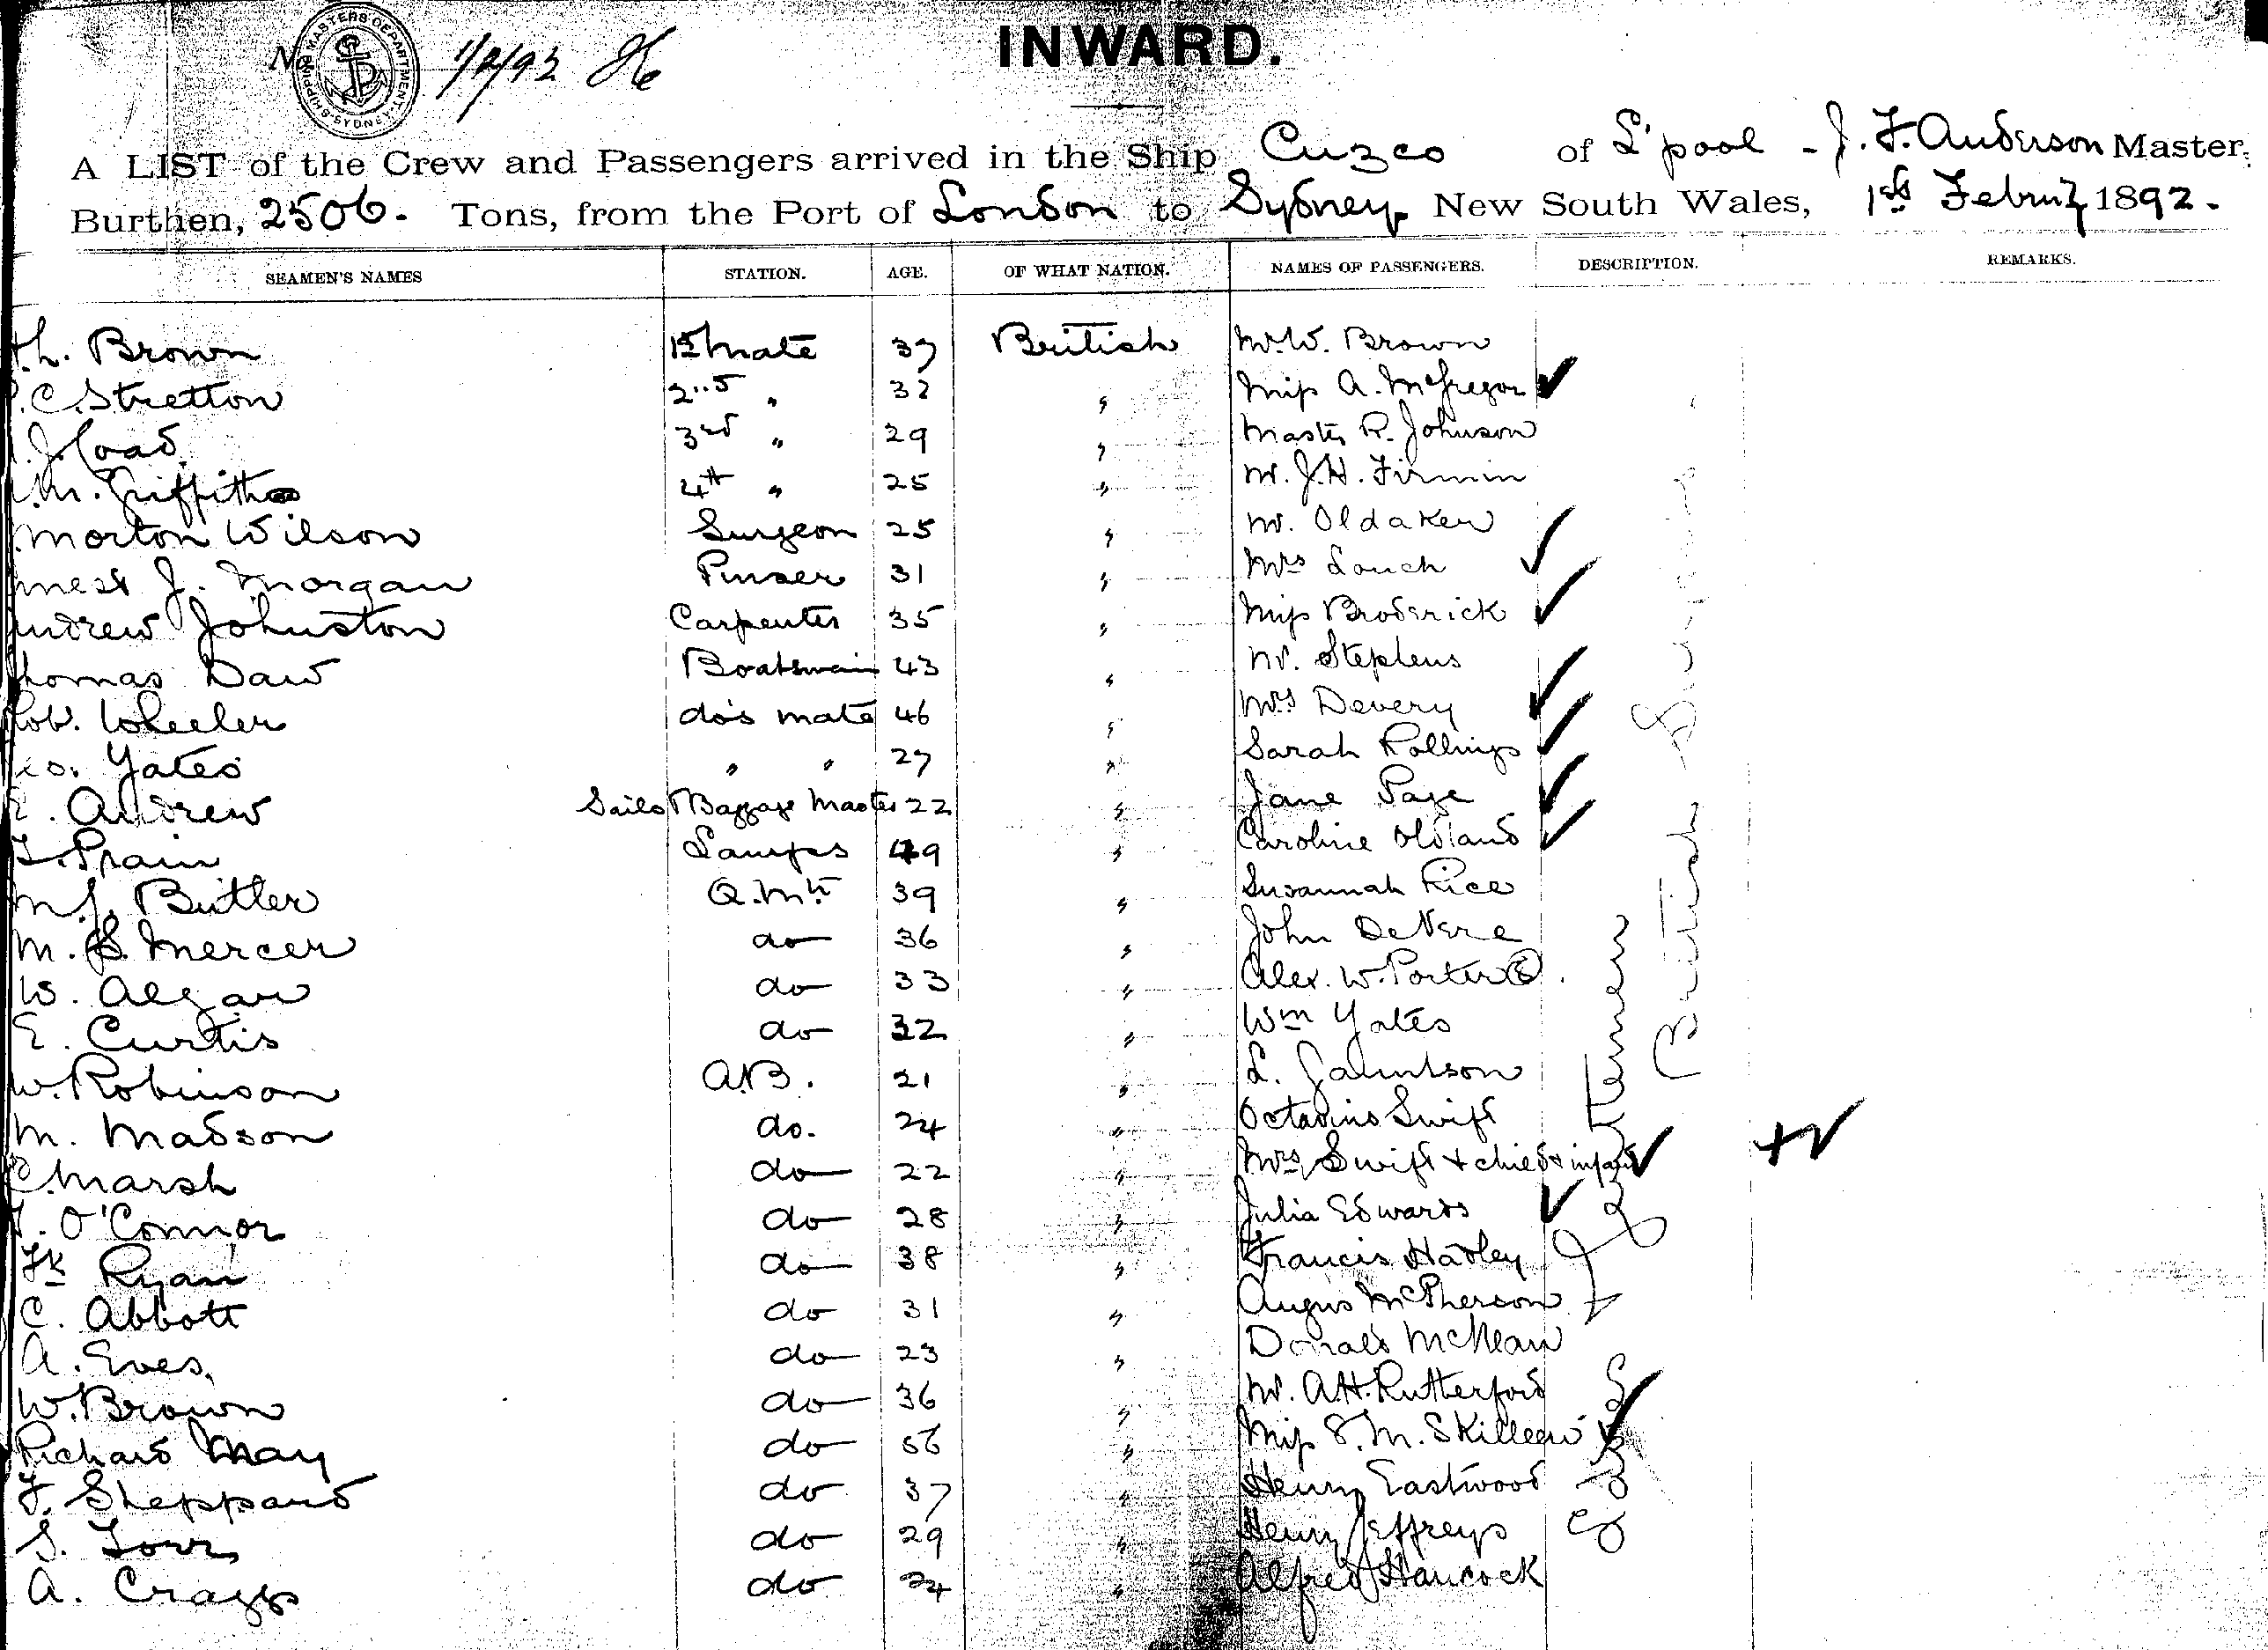 INWARD.
SHIPPING MASTERS DEPARTMENT SYDNEY
No 1/2/92
A LIST of the Crew and Passengers arrived in the Ship Cuzco of L'pool - J. F. Anderson Master,
Burthen, 2506. Tons, from the Port of London to Sydney, New South Wales, 1st 1892.
SEAMEN'S NAMES STATION. AGE. OF WHAT NATION. NAMES OF PASSENGERS. DESCRIPTION. REMARKS.
Brown 1st Mate 37 British Mr W. Brown
C. Stretton 32 " Miss A. McGregor
J. Coad 3rd " 29 " Master R. Johnson
M. Griffiths 4th " 25 " Mr. J.H. Firmin
Morton Wilson Surgeon 25 " Mr. Oldaker
J. Morgan Purser 31 " Mrs Louch
Andrew Johnston Carpenter 35 " Miss Broderick
Thomas Daw Boatswain 43 " Mr. Stephens
Rob. Wheeler do's mate 46 " Mrs Devery
Yates " " 27 " Sarah Rollings
E. Andrew Sails Baggage Master 22 " Jane Page
Prain Lamps 49 " Caroline Oldland
M.J. Butler Q.Mr 39 " Susannah Rice
M. S. Mercer do 36 " John DeVere
W. Algar do 33 " Alex. W. Porter
E. Curtis do 32 " Wm Yates
W. Robinson A.B. 21 " L.
M. Madson do. 24 " Octavius Swift
Marsh do 22 " Mrs Swift + child + infant
O'Connor do 28 " Julia Edwards
Fk Ryan do 38 " Francis Hadley
C. Abbott do 31 " Angus McPherson
A. Eves do 23 " Donald McLean
W. Brown do 36 " Mr. A.H. Rutterford
Richard May do 56 " Miss S. M. Skilleen
F. Sheppard do 37 " Henry Eastwood
S. do 29 " Henry Jeffreys
A. Craggs do 24 " Alfred Hancock
Gentlemen
British